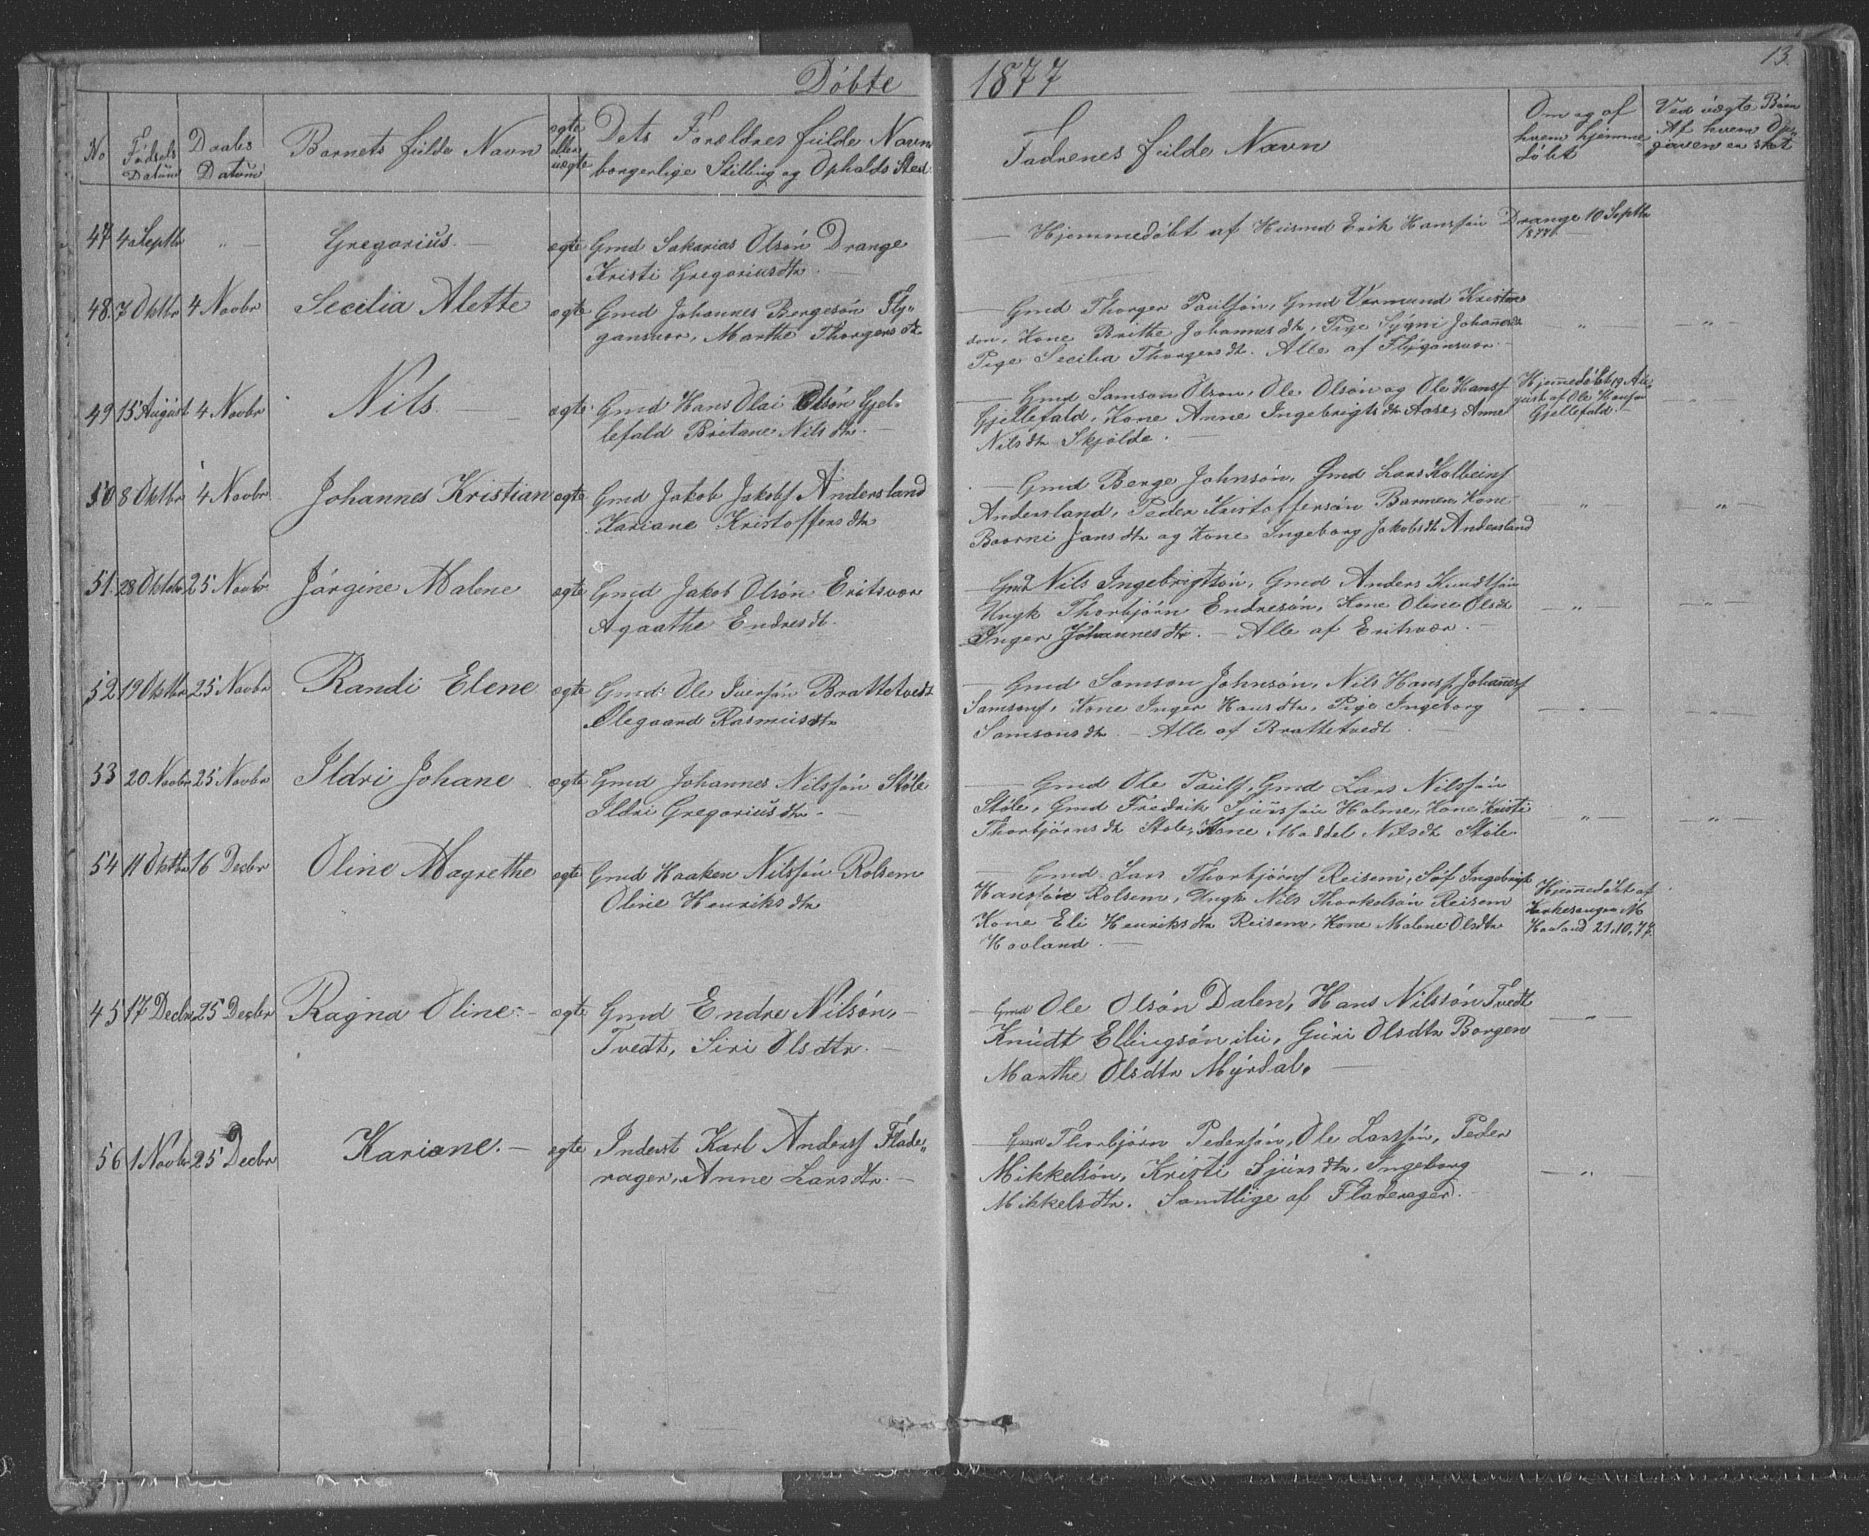 Döbte 1877
13.
No
Födsels Datum
Daabs Datum
Barnets fulde Navn
ægte eller uægte
Dets Forældres fulde Navn
borgerlige Stilling og Opholds Sted.
Fadrenes fulde Navn
Om og af hvem hjemme döbt
Ved uægte Börn Af hvem Opgaven er skeet
47 4 Septbr " — Gregorius. — ægte Gmd Sakarias Olsön Drange
Kristi Gregoriusdtr. —
— Hjemmedöbt af Husmd Erik Hanssön Drange 10 Septbr
1877
48. 7 Oktbr 4 Novbr Secilia Alette ægte Gmd Johannes Bergesön Fly„
gansvær, Marthe Thorgersdtr
— Gmd Thorger Paulsön, Gmd Vermund Kristen
sön, Kone Brithe Johannesdtr, Pige Sÿgni Johannesdtr
Pige Secilia Thorgersdtr. Alle af Flÿgansvær. —
— " —
— " —
49 15 August 4 Novbr Nils — ægte Gmd Hans Olai Olsön Gjel-
lefald Britane Nilsdtr. —
— Gmd Samson Olson, Ole Olsön og Ole Hansf
Gjellefald, Kone Anne Ingebrigtsdtr Aase, Anne
Nilsdtr Skjölde. —
Hjemmedöbt 19 Au-
gust af Ole Hansön
Gjellefald. —
— " —
50 8 Oktbr 4 Novbr. Johannes Kristian ægte Gmd Jakob Jakobf Andersland
Kariane Kristoffersdtr
— Gmd Berge Johnsön, Gmd Lars Kolbeinf
Andersland, Peder Kristoffersön Barmen, Kone
Baarni Jansdtr og Kone Ingeborg Jakobsdtr Andersland
" —
" —
51. 28 Oktbr 25 Novbr Jörgine Malene ægte Gmd Jakob Olsön Eritsvær
Agaathe Endresdtr.
— Gmd Nils Ingebrigtsön, Gmd Anders Knudtsön
Ungk Thorbjörn Endresön, Kone Oline Olsdtr
Inger Johannesdtr. — Alle af Eritsvær. —
— " —
— " —
52 19 Oktbr 25 Novbr Randi Elene ægte Gmd: Ole Iversön Brattetvedt
Olegaard Rasmusdtr
— Gmd Samson Johnsön, Nils Hansf, Johannesf
Samsonf, Kone Inger Hansdtr, Pige Ingeborg
Samsonsdtr. — Alle af Brattetvedt. —
— " —
— " —
53 20 Novbr 25 Novbr Ildri Johane ægte Gmd Johannes Nilssön Stöle
Ildri Gregoriusdtr. —
— Gmd Ole Paulf, Gmd Lars Nilssön
Stöle, Gmd Fredrik Sjurssön Holme, Kone Kristi
Thorbjörnsdtr Stöle, Kone Maddel Nilsdtr Stöle
" —
— " —
54 11 Oktbr 16 Decbr Oline Magrethe ægte Gmd Haaken Nilssön Rolsem
Oline Henriksdtr
— Gmd Lars Thorbjörnf Reisem, Söf Ingebrigt
Hanssön Rolsem, Ungk Nils Thorkelsön Reisem
Kone Eli Henriksdtr Reisem, Kone Malene Olsdtr
Hovland. —
Hjemmedöbt af
Kirkesanger M
Hovland 21.10.77.
45 17 Decbr 25 Decbr Ragna Oline. — ægte Gmd Endre Nilsön, —
Tvedt, Siri Olsdtr. —
— Gmd Ole Olsön Dalen, Hans Nilssön Tvedt
Knudt Ellingsön ibi, Guri Olsdtr Borgen
Marthe Olsdtr Mÿrdal. —
— " —
56 1 Novbr 25 Decbr Kariane. — ægte Inderst Karl Andersf Flade„
rager, Anne Larsdtr. —
— Gmd Thorbjörn Pedersön, Ole Larssön, Peder
Mikkelsön, Kristi Sjursdtr, Ingeborg
Mikkelsdtr. Samtlige af Fladerager.
— " —